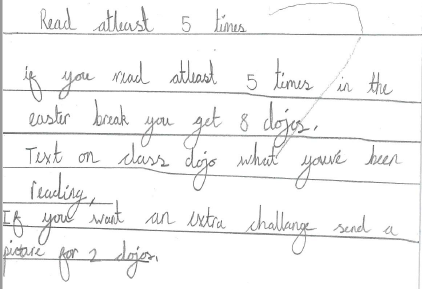 Read atleast 5 times
if you read atleast 5 times in the
easter break you get 8 dojos.
Text on class dojo what you've been
reading,
If you want an extra challange send a
picture for 2 dojos.